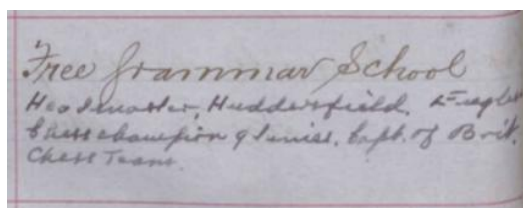 Free Grammar School
Headmaster, Huddersfield. England
Chess champion & Tennis. Capt. of Brit.
Chess Team.